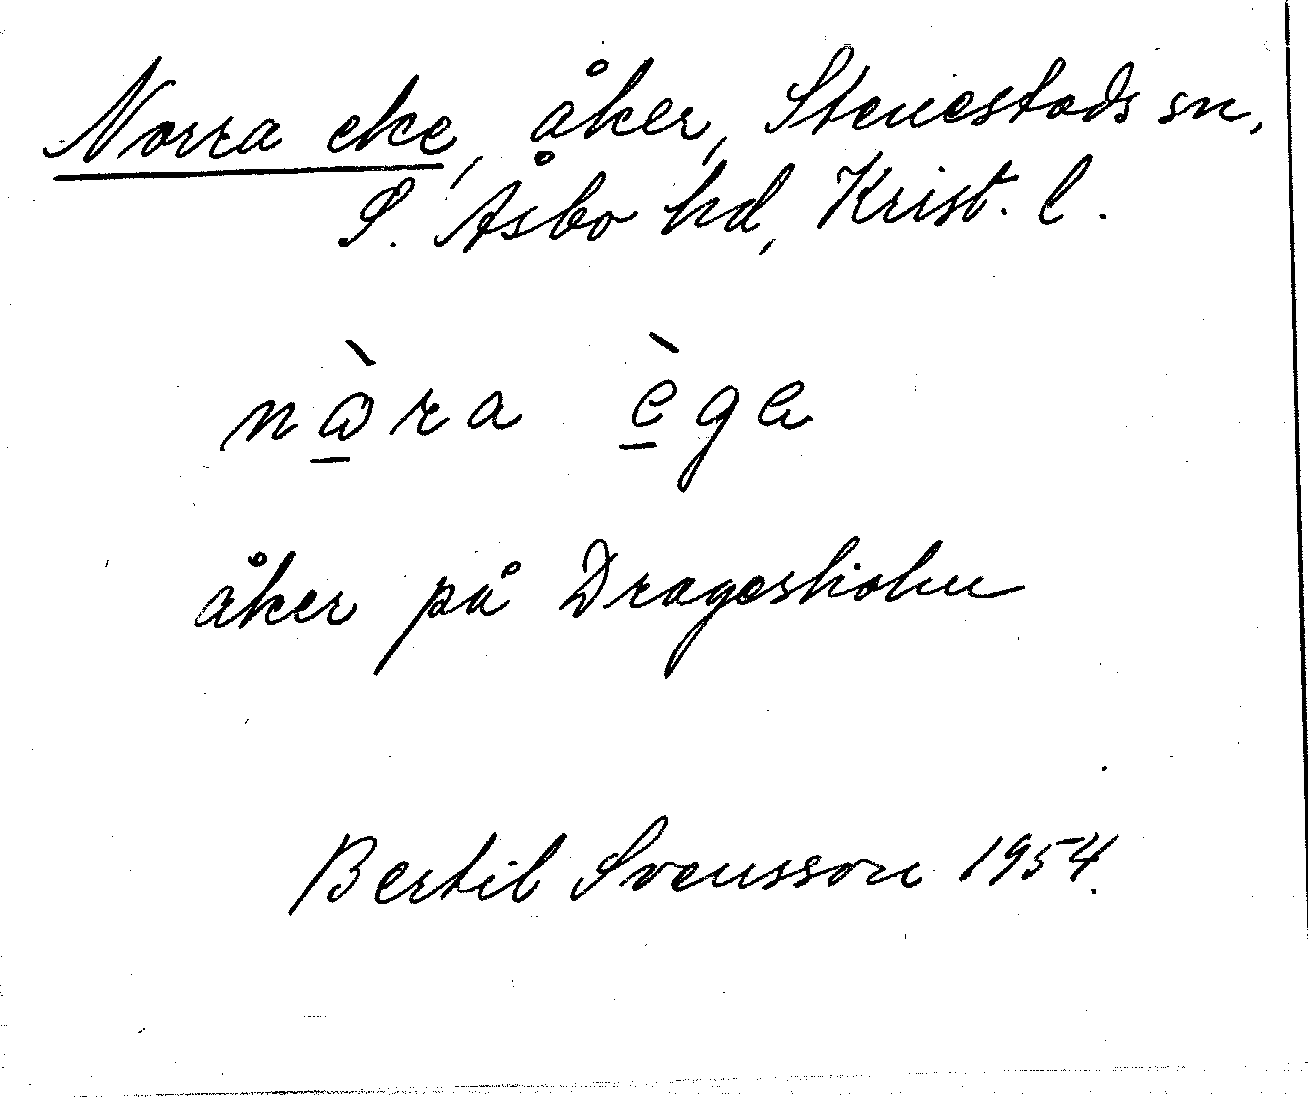 Norra eke, åker, Stenestads sn,
S. Åsbo hd, Krist. l.
nὼra ège
åker på Dragesholm
Bertil Svensson 1954.